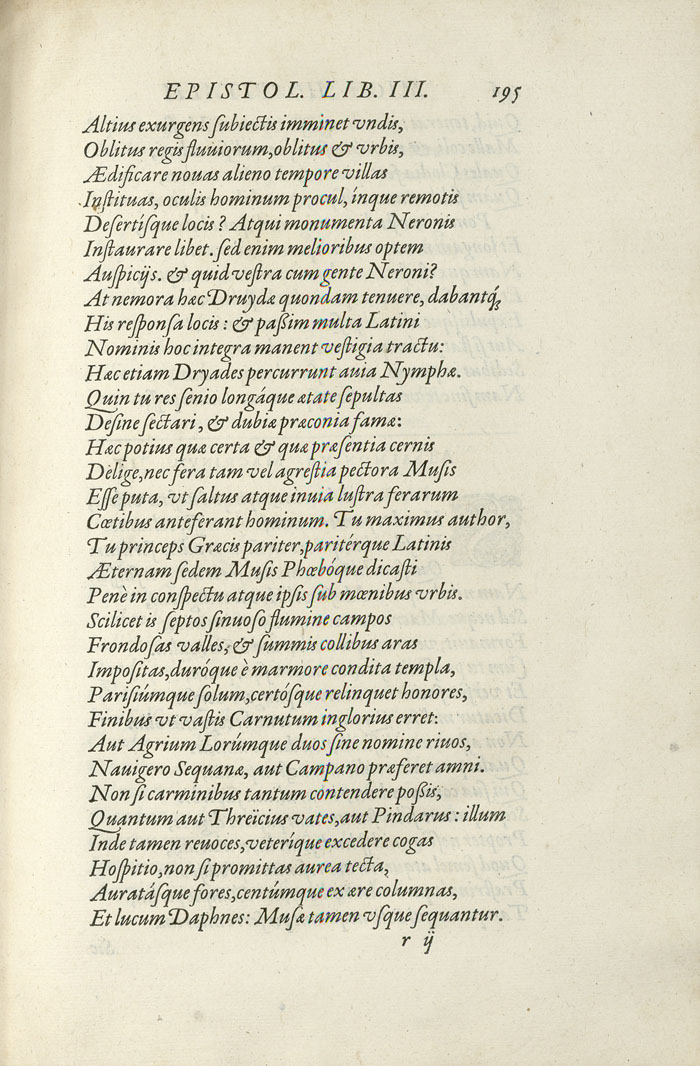 EPISTOL. LIB. III. 195
Altius exurgens subiectis imminet vndis,
Oblitus regis fluuiorum, oblitus & vrbis,
Ædificare nouas alieno tempore villas
Instituas, oculis hominum procul, ínque remotis
Desertísque locis? Atqui monumenta Neronis
Instaurare libet. sed enim melioribus optem
Auspicijs. & quid vestra cum gente Neroni?
At nemora hæc Druydæ quondam tenuere, dabantq́;
His responsa locis: & paßim multa Latini
Nominis hoc integra manent vestigia tractu:
Hæc etiam Dryades percurrunt auia Nymphæ.
Quin tu res senio longáque ætate sepultas
Desine sectari, & dubiæ præconia famæ:
Hæc potius quæ certa & quæ præsentia cernis
Delige, nec fera tam vel agrestia pectora Musis
Esse puta, vt saltus atque inuia lustra ferarum
Cœtibus anteferant hominum. Tu maximus author,
Tu princeps Græcis pariter, paritérque Latinis
Æternam sedem Musis Phœbóque dicasti
Penè in conspectu atque ipsis sub mœnibus vrbis.
Scilicet is septos sinuoso flumine campos
Frondosas valles, & summis collibus aras
Impositas, duróque è marmore condita templa,
Parisiúmque solum, certósque relinquet honores,
Finibus vt vastis Carnutum inglorius erret:
Aut Agrium Lorúmque duos sine nomine riuos,
Nauigero Sequanæ, aut Campano præferet amni.
Non si carminibus tantum contendere poßis,
Quantum aut Threicius vates, aut Pindarus: illum
Inde tamen reuoces, veteríque excedere cogas
Hospitio, non si promittas aurea tecta,
Auratásque fores, centúmque ex ære columnas,
Et lucum Daphnes: Musæ tamen vsque sequantur.
r ij